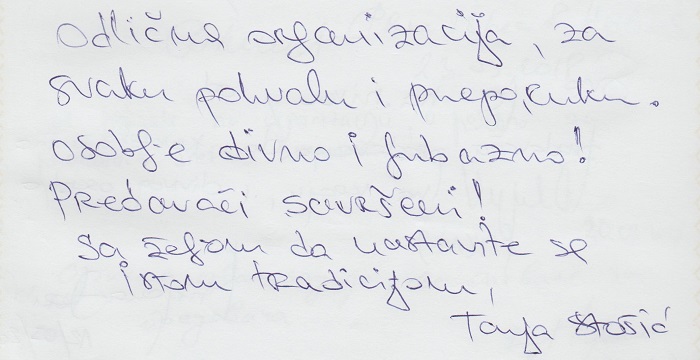 Odlična organizacija, za
svaku pohvalu i preporuku.
Osoblje divno i ljubazno!
Predavači savršeni!
Sa željom da nastavite sa
istom tradicijom,
Tanja Stošić